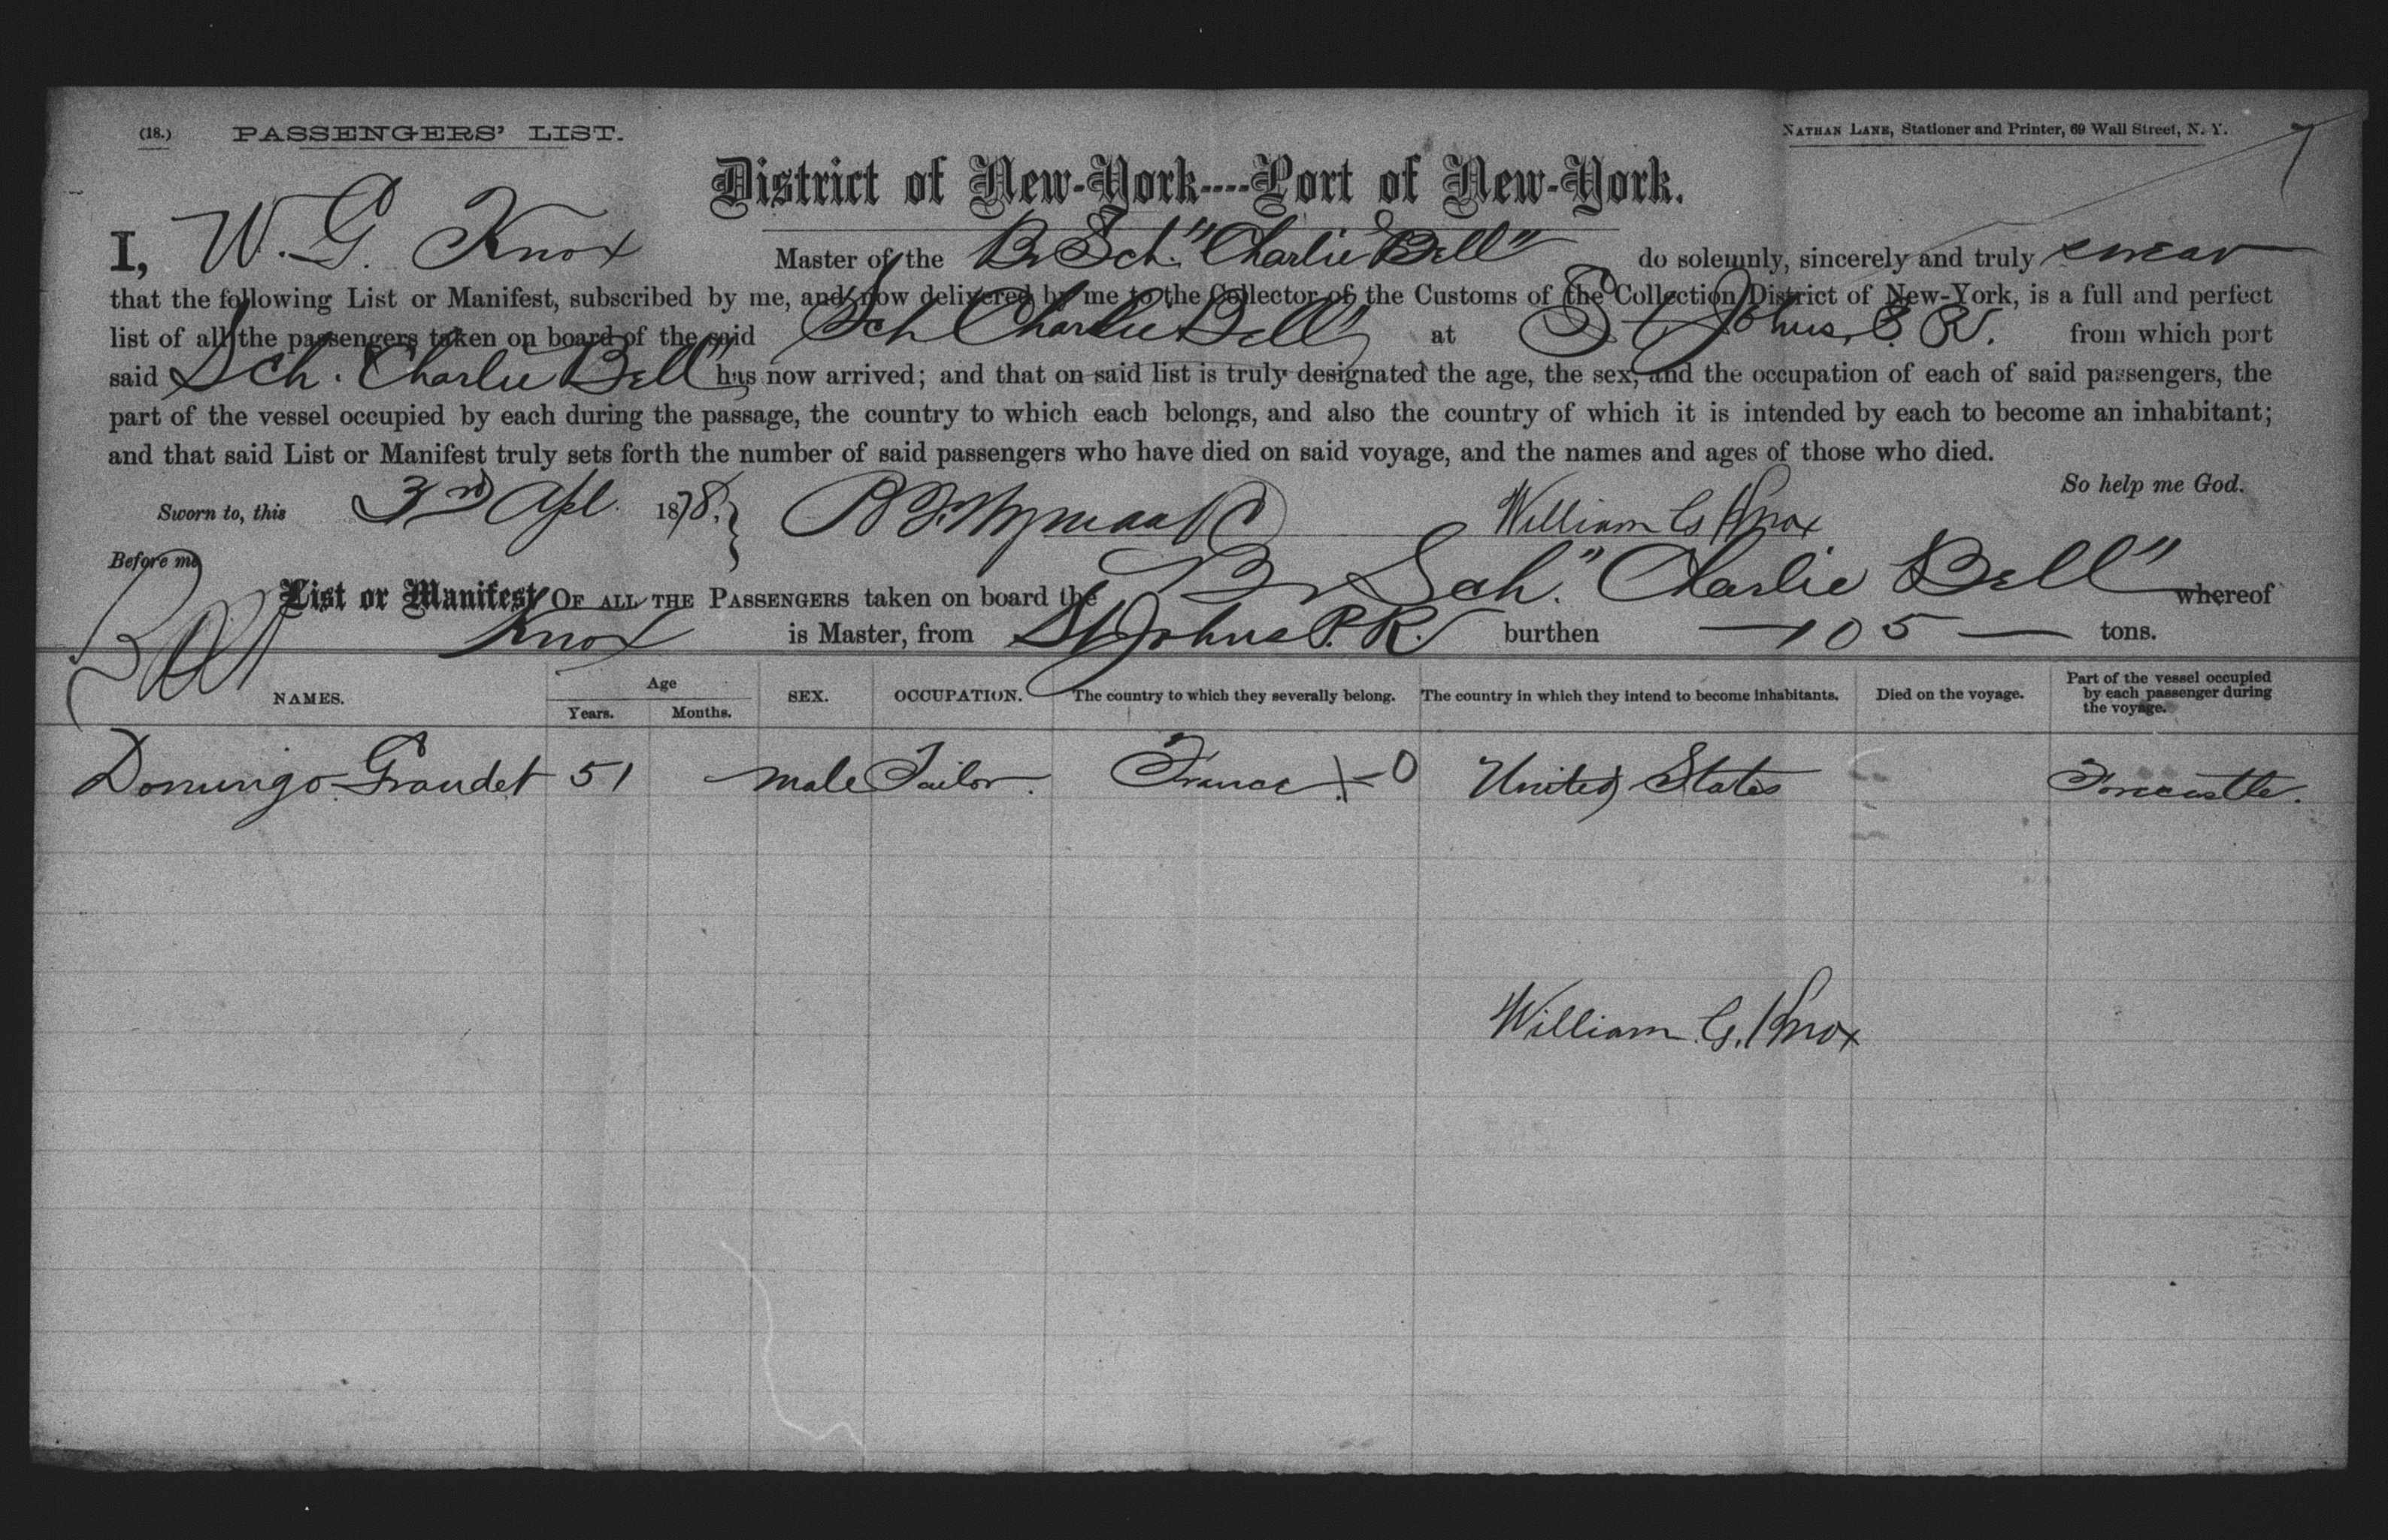 (18.) PASSENGERS' LIST.
NATHAN LANE, Stationer and Printer, 69 Wall Street, N. Y.
7
District of New-York----Port of New-York.
I, W. G. Knox Master of the Br Sch. "Charlie Bell" do solemnly, sincerely and truly swear
that the following List or Manifest, subscribed by me, and now delivered by me to the Collector of the Customs of the Collection District of New-York, is a full and perfect
list of all the passengers taken on board of the said Sch Charlie Bell at St Johns, P. R. from which port
said Sch. Charlie Bell" has now arrived; and that on said list is truly designated the age, the sex, and the occupation of each of said passengers, the
part of the vessel occupied by each during the passage, the country to which each belongs, and also the country of which it is intended by each to become an inhabitant;
and that said List or Manifest truly sets forth the number of said passengers who have died on said voyage, and the names and ages of those who died.
So help me God.
Sworn to, this 3rd Apl. 1878. William G Knox
Before me
List or Manifest OF ALL THE PASSENGERS taken on board the Br Sch. "Charlie Bell" whereof
Knox is Master, from St Johns P. R. burthen 105 tons.
NAMES. Age Years. Months. SEX. OCCUPATION. The country to which they severally belong. The country in which they intend to become inhabitants. Died on the voyage. Part of the vessel occupied by each passenger during the voyage.
Domingo Graudet 51 male Tailor. France +-0 United States Forecastle.
William. G. Knox